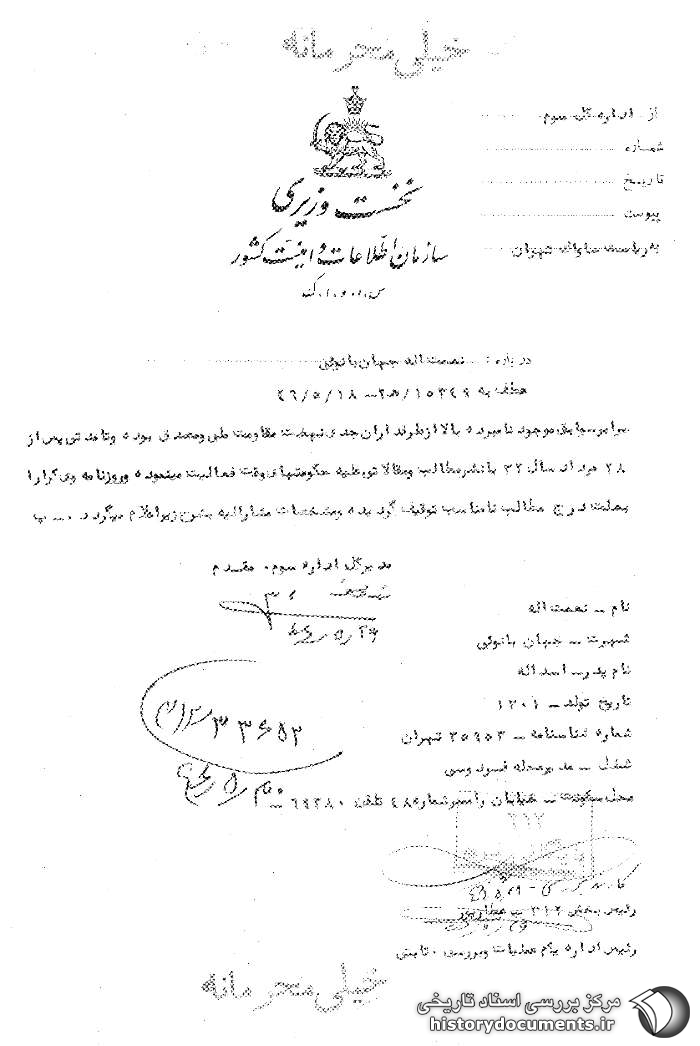 خیلی محرمانه
از اداره کل سوم
شماره
تاریخ
پیوست
به ریاست ساواک تهران
نخست وزیری
سازمان اطلاعات و امنیت کشور
س.ا.و.ا.ک
درباره : نعمت اله جهان بانوئی
عطف به ۱۵۳۴۹/ ۲ـ ۴۶/۵/۱۸
برابر سوابق موجود نامبرده بالا از طرفداران جدی نهضت مقاومت ملی ومصدق بوده وتا مدتی پس از
۲۸ مرداد سال ۳۲ با نشر مطالب ومقالاتی علیه حکومتهای وقت فعالیت مینموده وروزنامه وی کرارا
بعلت درج مطالب نامناسب توقیف گردیده ومشخصات مشارالیه بشرح زیر اعلام میگردد . ب
مدیرکل اداره سوم . مقدم
نام ـ نعمت اله
شهرت ـ جهان بانوئی
نام پدر ـ اسداله
تاریخ تولد ـ ۱۳۰۱
شماره شناسنامه ـ ۳۵۹۵۳ تهران
شغل ـ مدیر مجله فردوسی
محل سکونت ـ خیابان رامسر شماره ۴۸ تلفن ۶۹۲۸۰
۳۳۶۵۲
۳۱۲
رئیس بخش ۳۱۲ ـ عطارپور
رئیس اداره یکم عملیات وبررسی . ثابتی
خیلی محرمانه
مرکز بررسی اسناد تاریخی
historydocuments.ir